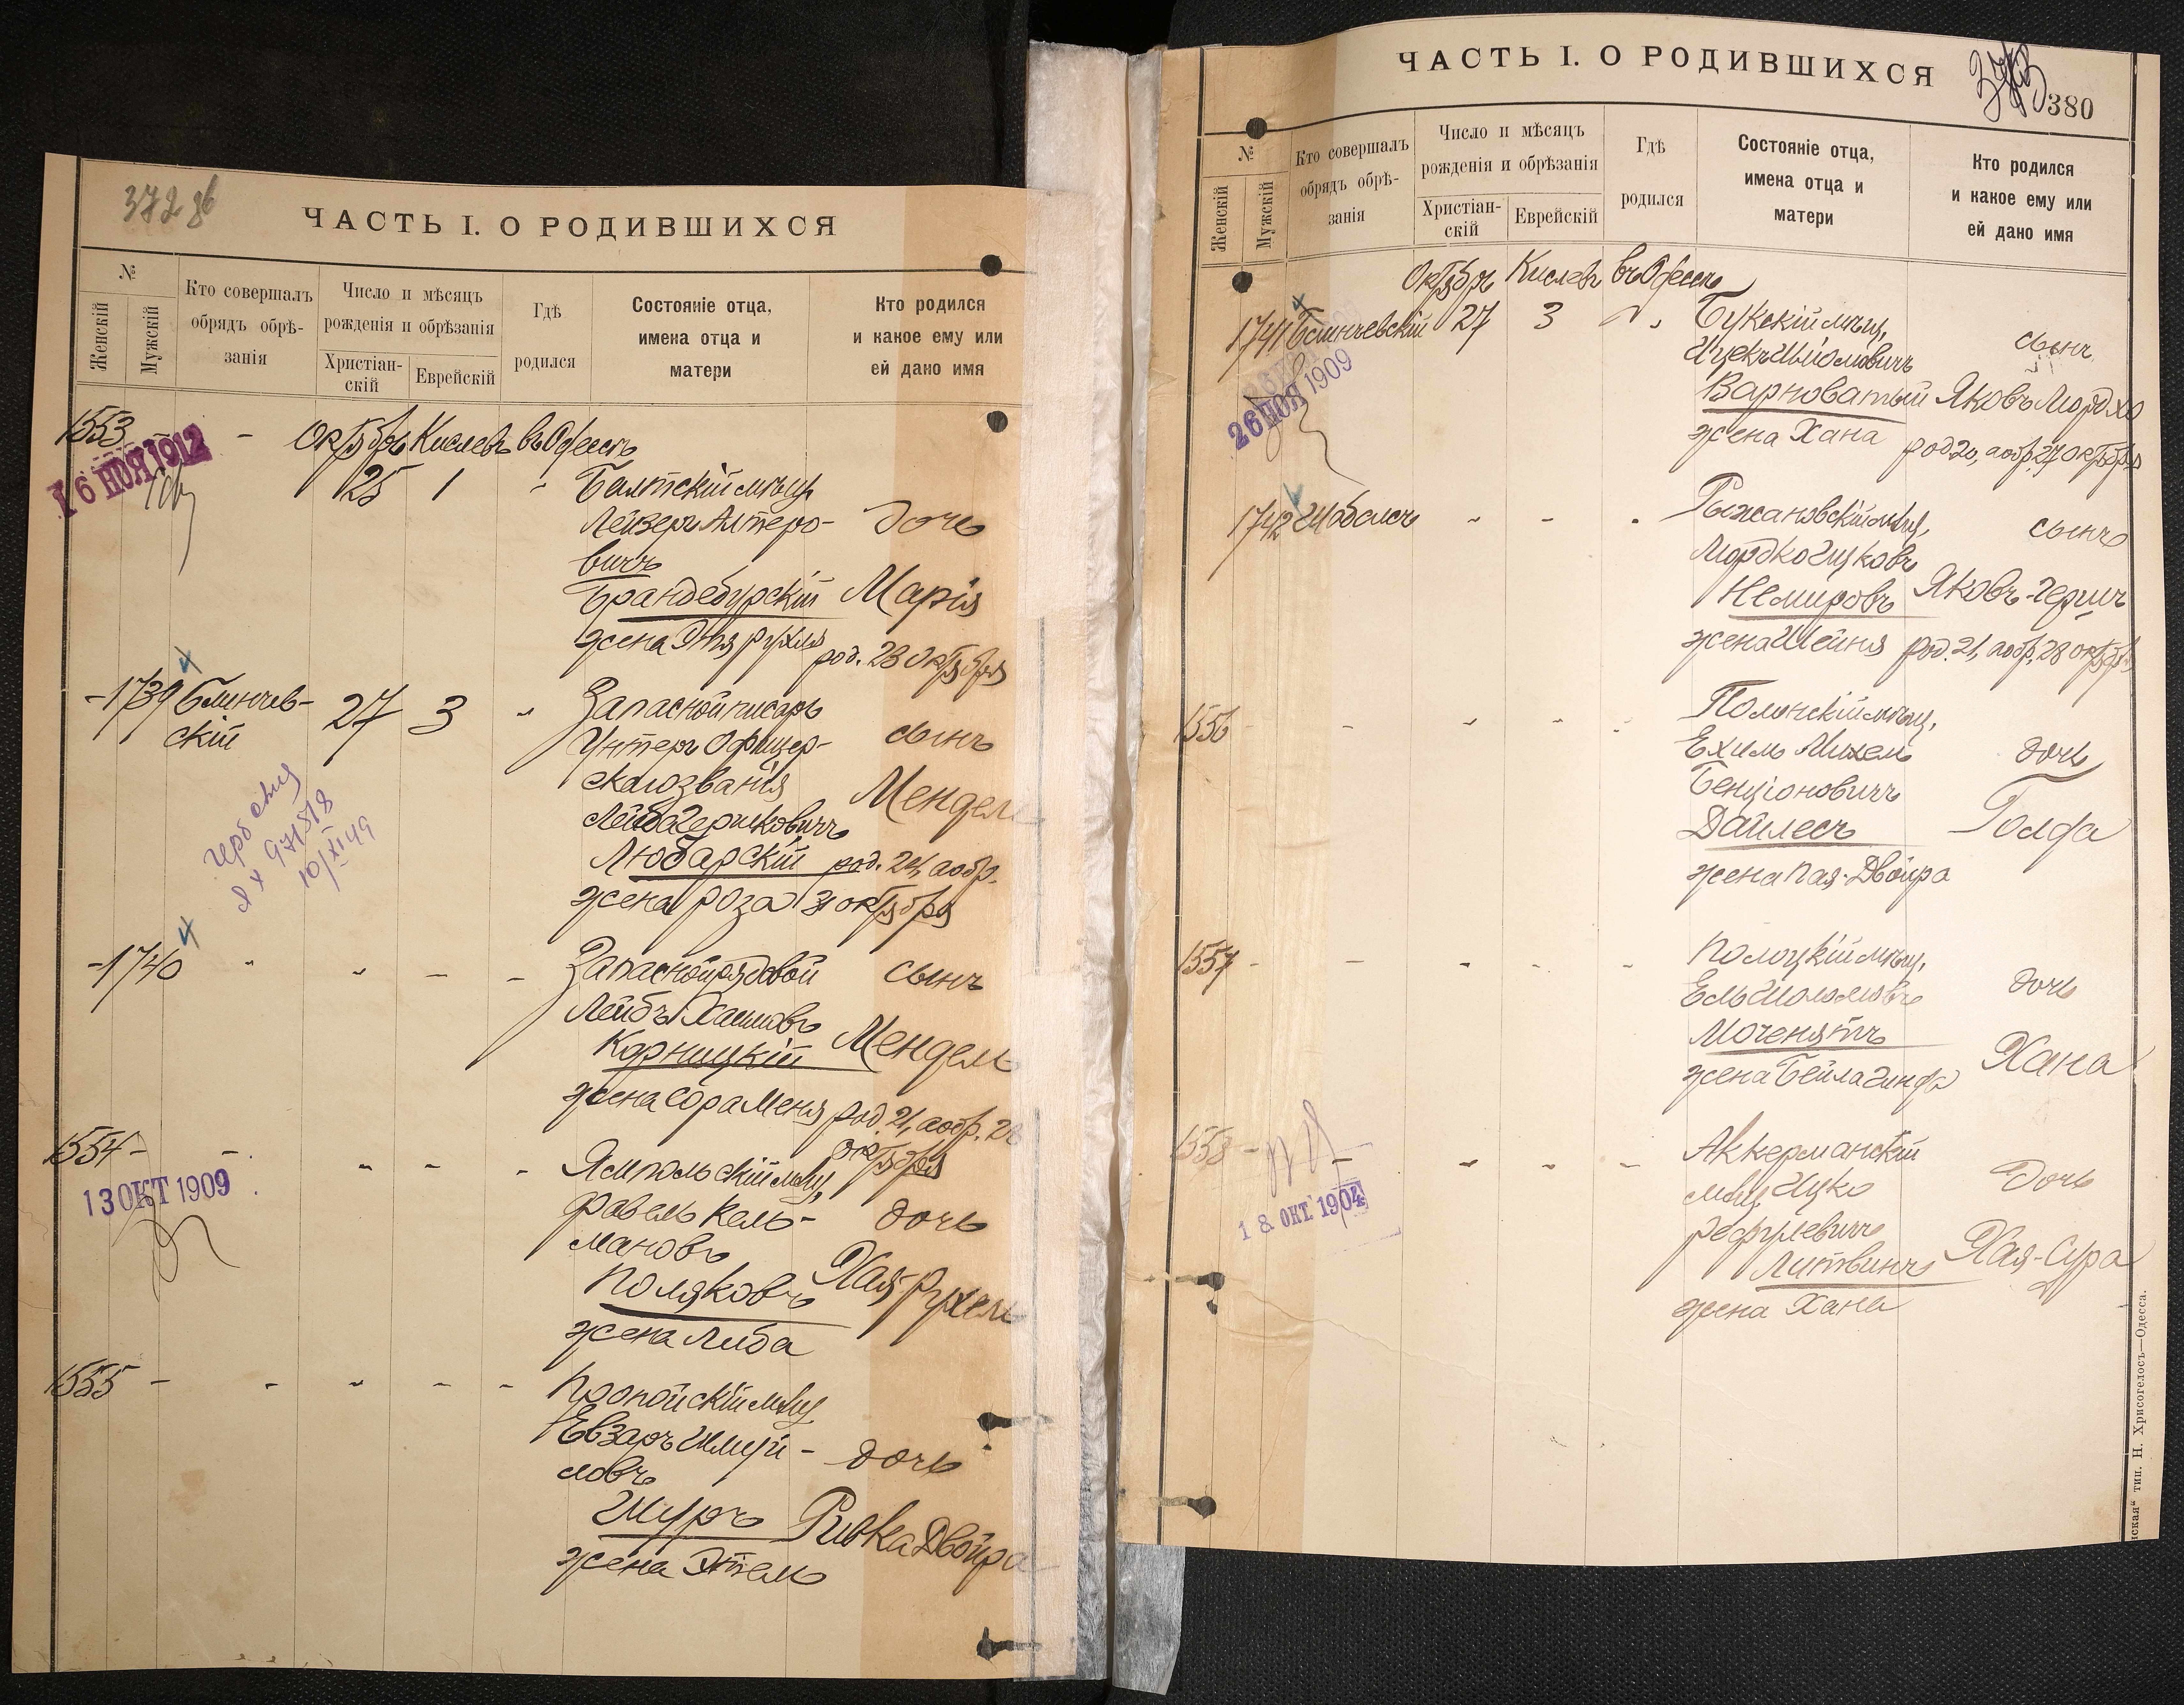 372 об
ЧАСТЬ I. О РОДИВШИХСЯ
№
Женскій
Мужскій
Кто совершалъ
обрядъ обрѣ-
занія
Число и мѣсяцъ
рожденія и обрѣзанія
Христіан-
скій
Еврейскій
Гдѣ
родился
Состояніе отца,
имена отца и
матери
Кто родился
и какое ему или
ей дано имя
1553 - - Октябрь Кислевъ въ Одессѣ
16 НОЯ 1912
25 1 " Балтскій мѣщ.
Лейзеръ Алтеро- дочь
вичъ
Брандебурскій Марія
жена Этя Рухля род. 23 Октября
-1739 Блинчев- 27 3 " Запасной писарь
скій
Унтеръ Офицер- сынъ
скаго званія Мендель
Лейба Гершковичъ
Любарскій род. 24, аобр.
жена Роза 31 октября
10/XI 49
-1740 " " - - Запасной рядовой сынъ
Лейбъ Хаимовъ
Корницкій Мендель
жена Сора Меня род. 21, аобр. 28
октября
1554 - - " - " Ямпольскій мѣщ.
13 ОКТ 1909
Фавель Кель- дочь
мановъ
Поляковъ Хая-Рухель
жена Либа
1555 - - " - - Пропойскій мѣщ.
Евзаръ Шмуй- дочь
ловъ
Шуръ Ривка Двойра
жена Этель
ЧАСТЬ I. О РОДИВШИХСЯ
373
380
№
Женскій
Мужскій
Кто совершалъ
обрядъ обрѣ-
занія
Число и мѣсяцъ
рожденія и обрѣзанія
Христіан-
скій
Еврейскій
Гдѣ
родился
Состояніе отца,
имена отца и
матери
Кто родился
и какое ему или
ей дано имя
Октябрь Кислевъ въ Одессѣ
1741 Блинчевскій 27 3 " Букскій мѣщ.
Ицекъ Шьоловичъ сынъ
26 НОЯ 1909
Варноватый Яковъ Мордхо
жена Хана род 20, аобр. 27 октября
1742 Шобельсъ " - " Рыжановскій мѣщ. сынъ
Мордко Ицковъ
Немировъ Яковъ-Гершъ
жена Шейня род. 21, аобр. 28 октября
1556 - - " - " Полонскій мѣщ.
Ехиль Михель дочь
Бенціоновичъ
Дайлесъ Голда
жена Пая-Двойра
1557 - - " - - Полоцкій мѣщ.
Ель Шоломовъ дочь
Моченятъ
жена Бейла Гинда Хана
1558 - - " - - Аккерманскій
мѣщ. Ицко дочь
18 ОКТ 1904
Рефулевичъ
Литвинъ Хая-Сура
жена Хана
ская" тип. Н. Хрисогелосъ—Одесса.